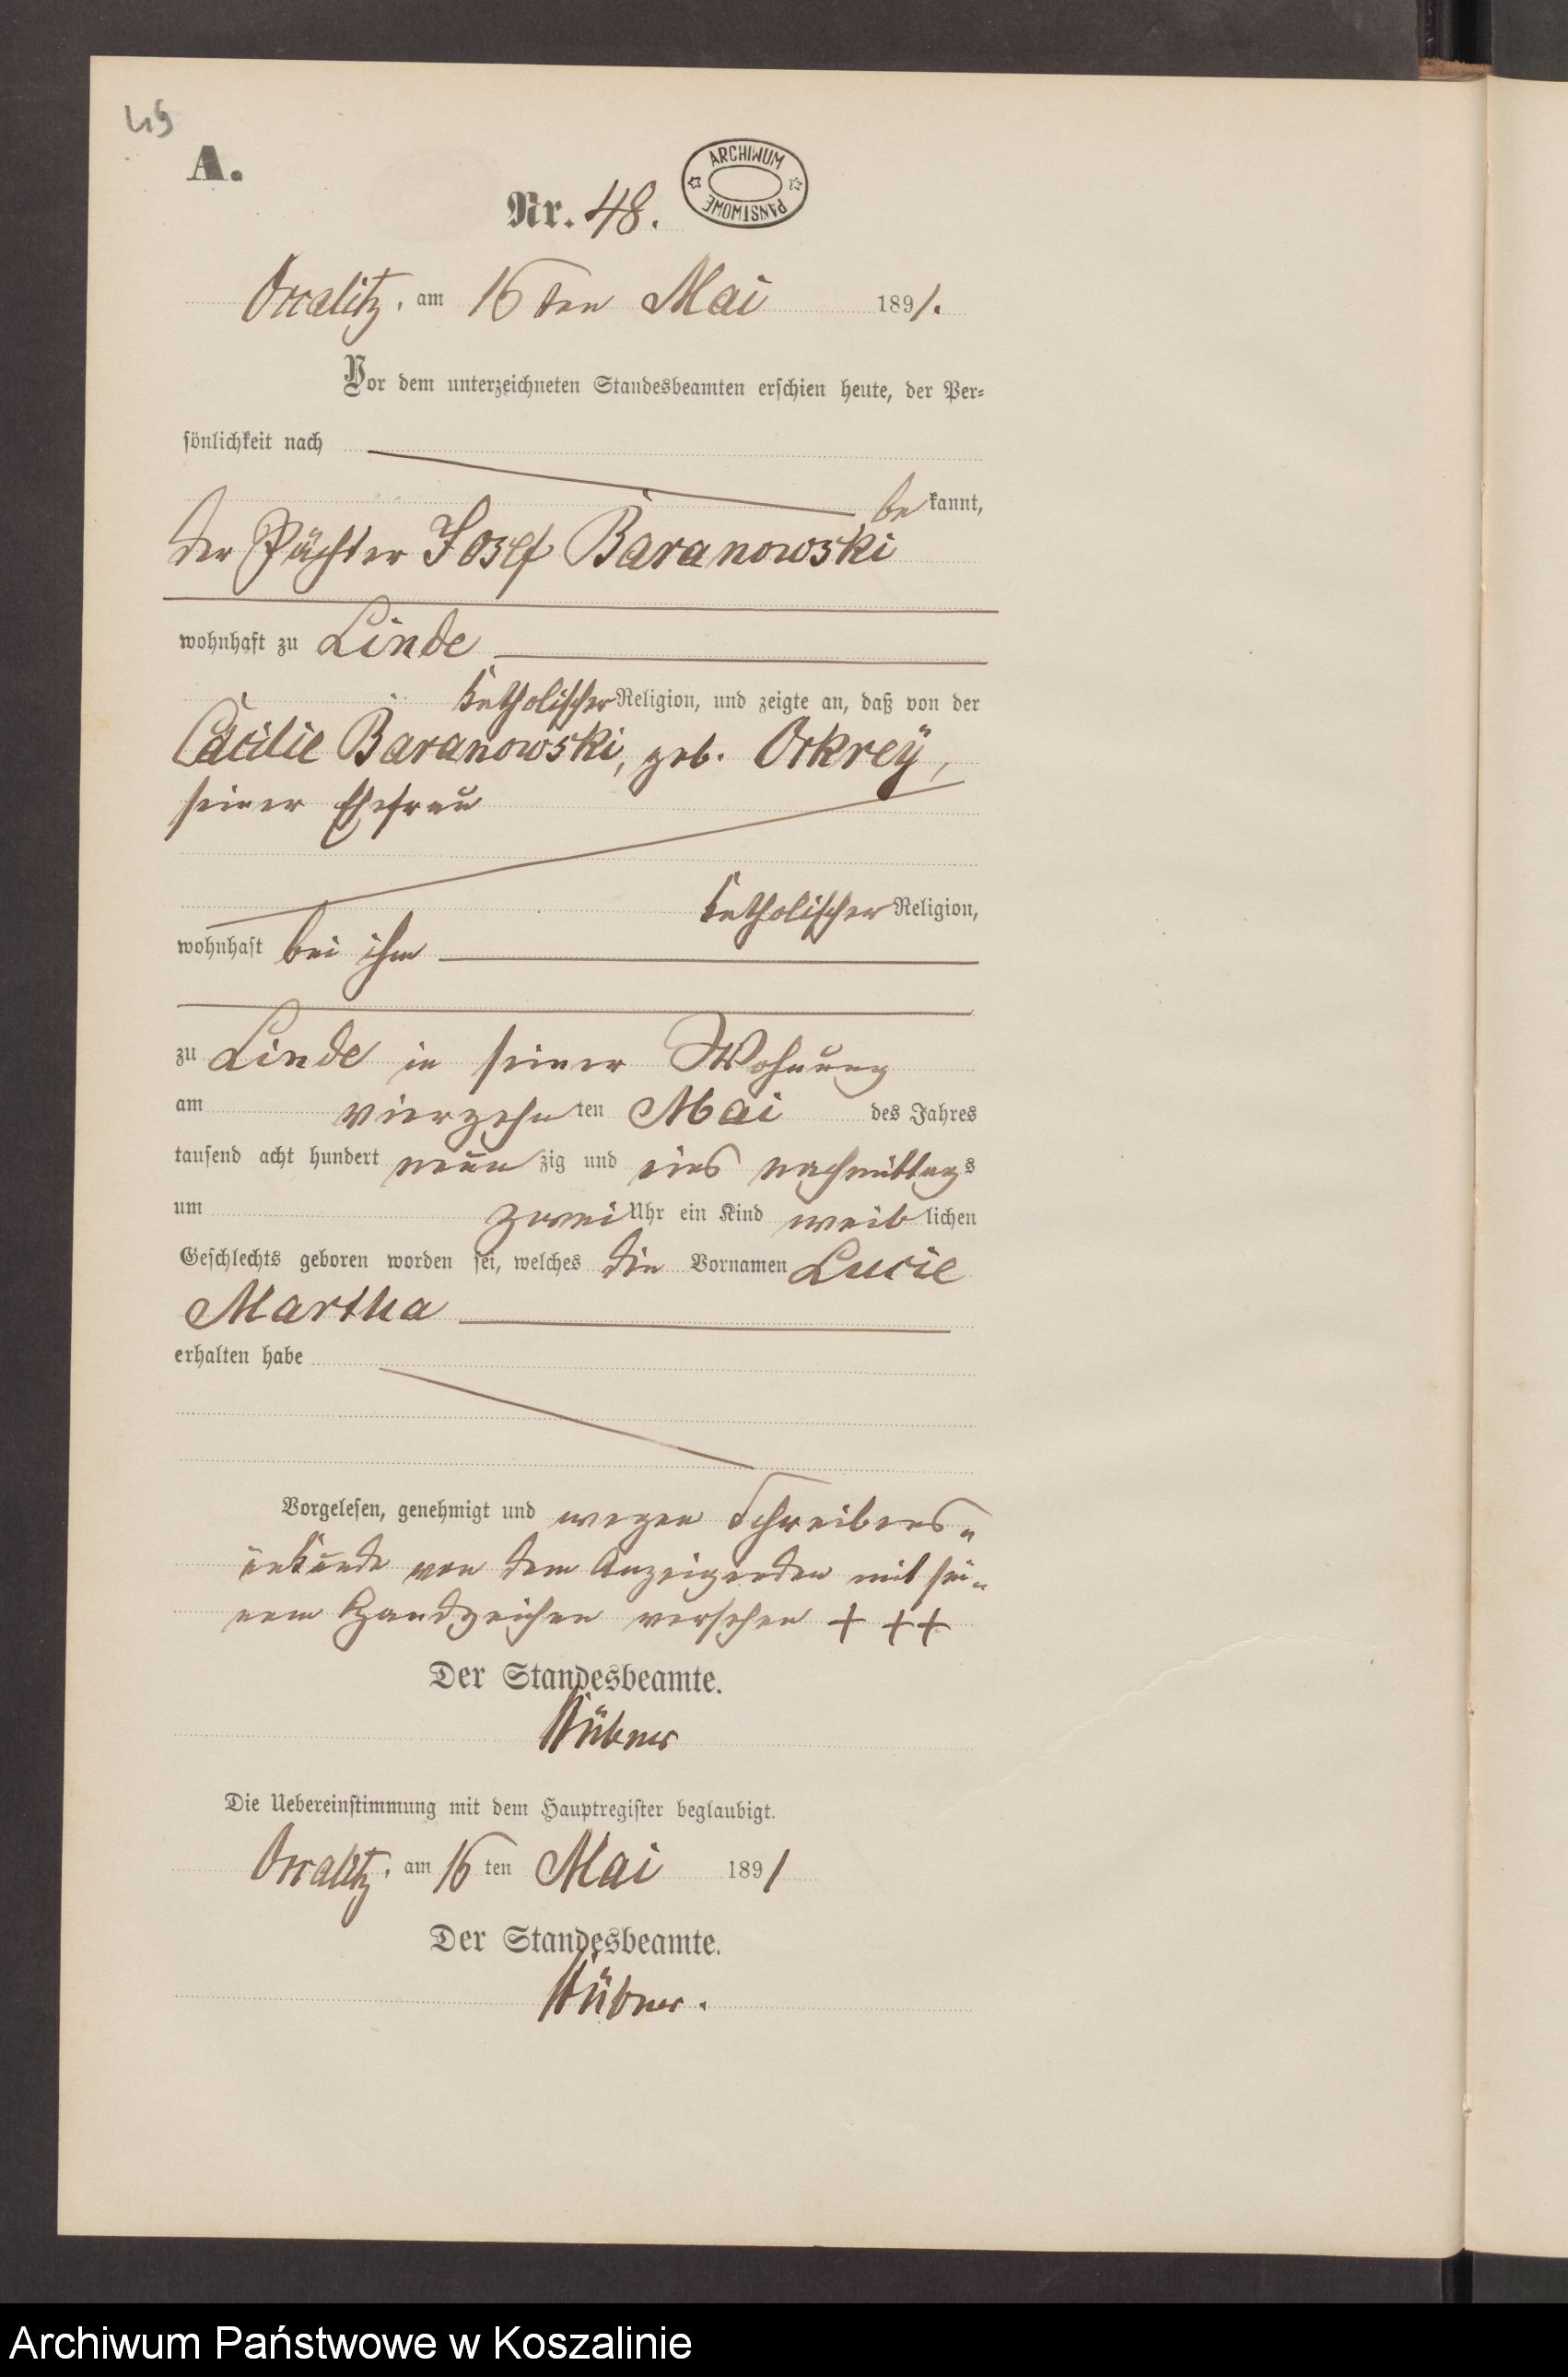 49
A.
Nr. 48.
ARCHIWUM PAŃSTWOWE
am 16 ten Mai 1891.
Vor dem unterzeichneten Standesbeamten erschien heute, der Per-
sönlichkeit nach
be kannt,
der Pächter Josef Baranowski
wohnhaft zu Linde
katholischer Religion, und zeigte an, daß von der
Cäcilie Baranowski, geb. Orkrey,
seiner Ehefrau
katholischer Religion,
wohnhaft bei ihm
zu Linde in seiner Wohnung
am vierzehn ten Mai des Jahres
tausend acht hundert neun zig und eins nachmittags
um zwei Uhr ein Kind weib lichen
Geschlechts geboren worden sei, welches die Vornamen Lucie
Martha
erhalten habe
Vorgelesen, genehmigt und wegen Schreibens-
unkunde von dem Anzeigenden mit sei-
nem Handzeichen versehen + ++
Der Standesbeamte.
Hübner
Die Uebereinstimmung mit dem Hauptregister beglaubigt.
am 16 ten Mai 1891
Der Standesbeamte.
Hübner.
Archiwum Państwowe w Koszalinie